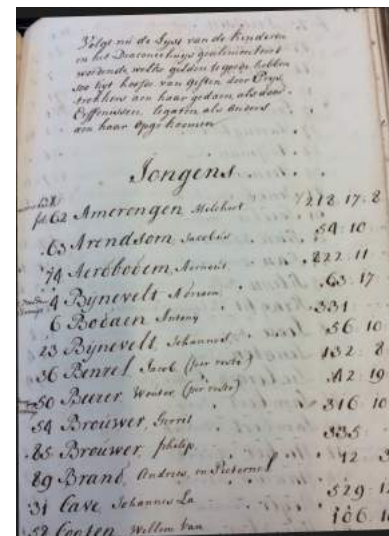 Volgt nu de Lyst van de kinderen
in het Diaconiehuys gealimenteert
werdende, welke gelden tegoede hebben
soo uyt hoofde van giften door
aen haar gedaan als door
Erffenissen, legaten als anders
aen haar opgekoomen
Jongens
fol. 62 Amerongen, Melchert 218 : 17 : 8
63 Arendsom, Jacobus 54 : 10
74 Aerdbodem, Aernout 222 : 11
4 Bynevelt, 63 : 17
6 Bodaen, Antony 331
23 Bynevelt, Johannes 56 : 10
36 Benzel, Jacob (per resto) 132 : 8
50 Beezer, Wouter (per resto) 42 : 19
54 Brouwer, Gerrit 316 : 10
85 Brouwer, philip 335
89 Brand, Andries, en Pieternel 12 : 3
31 Cave, Johannes La 529 : 12
52 Cooten, Willem van 106 : 1